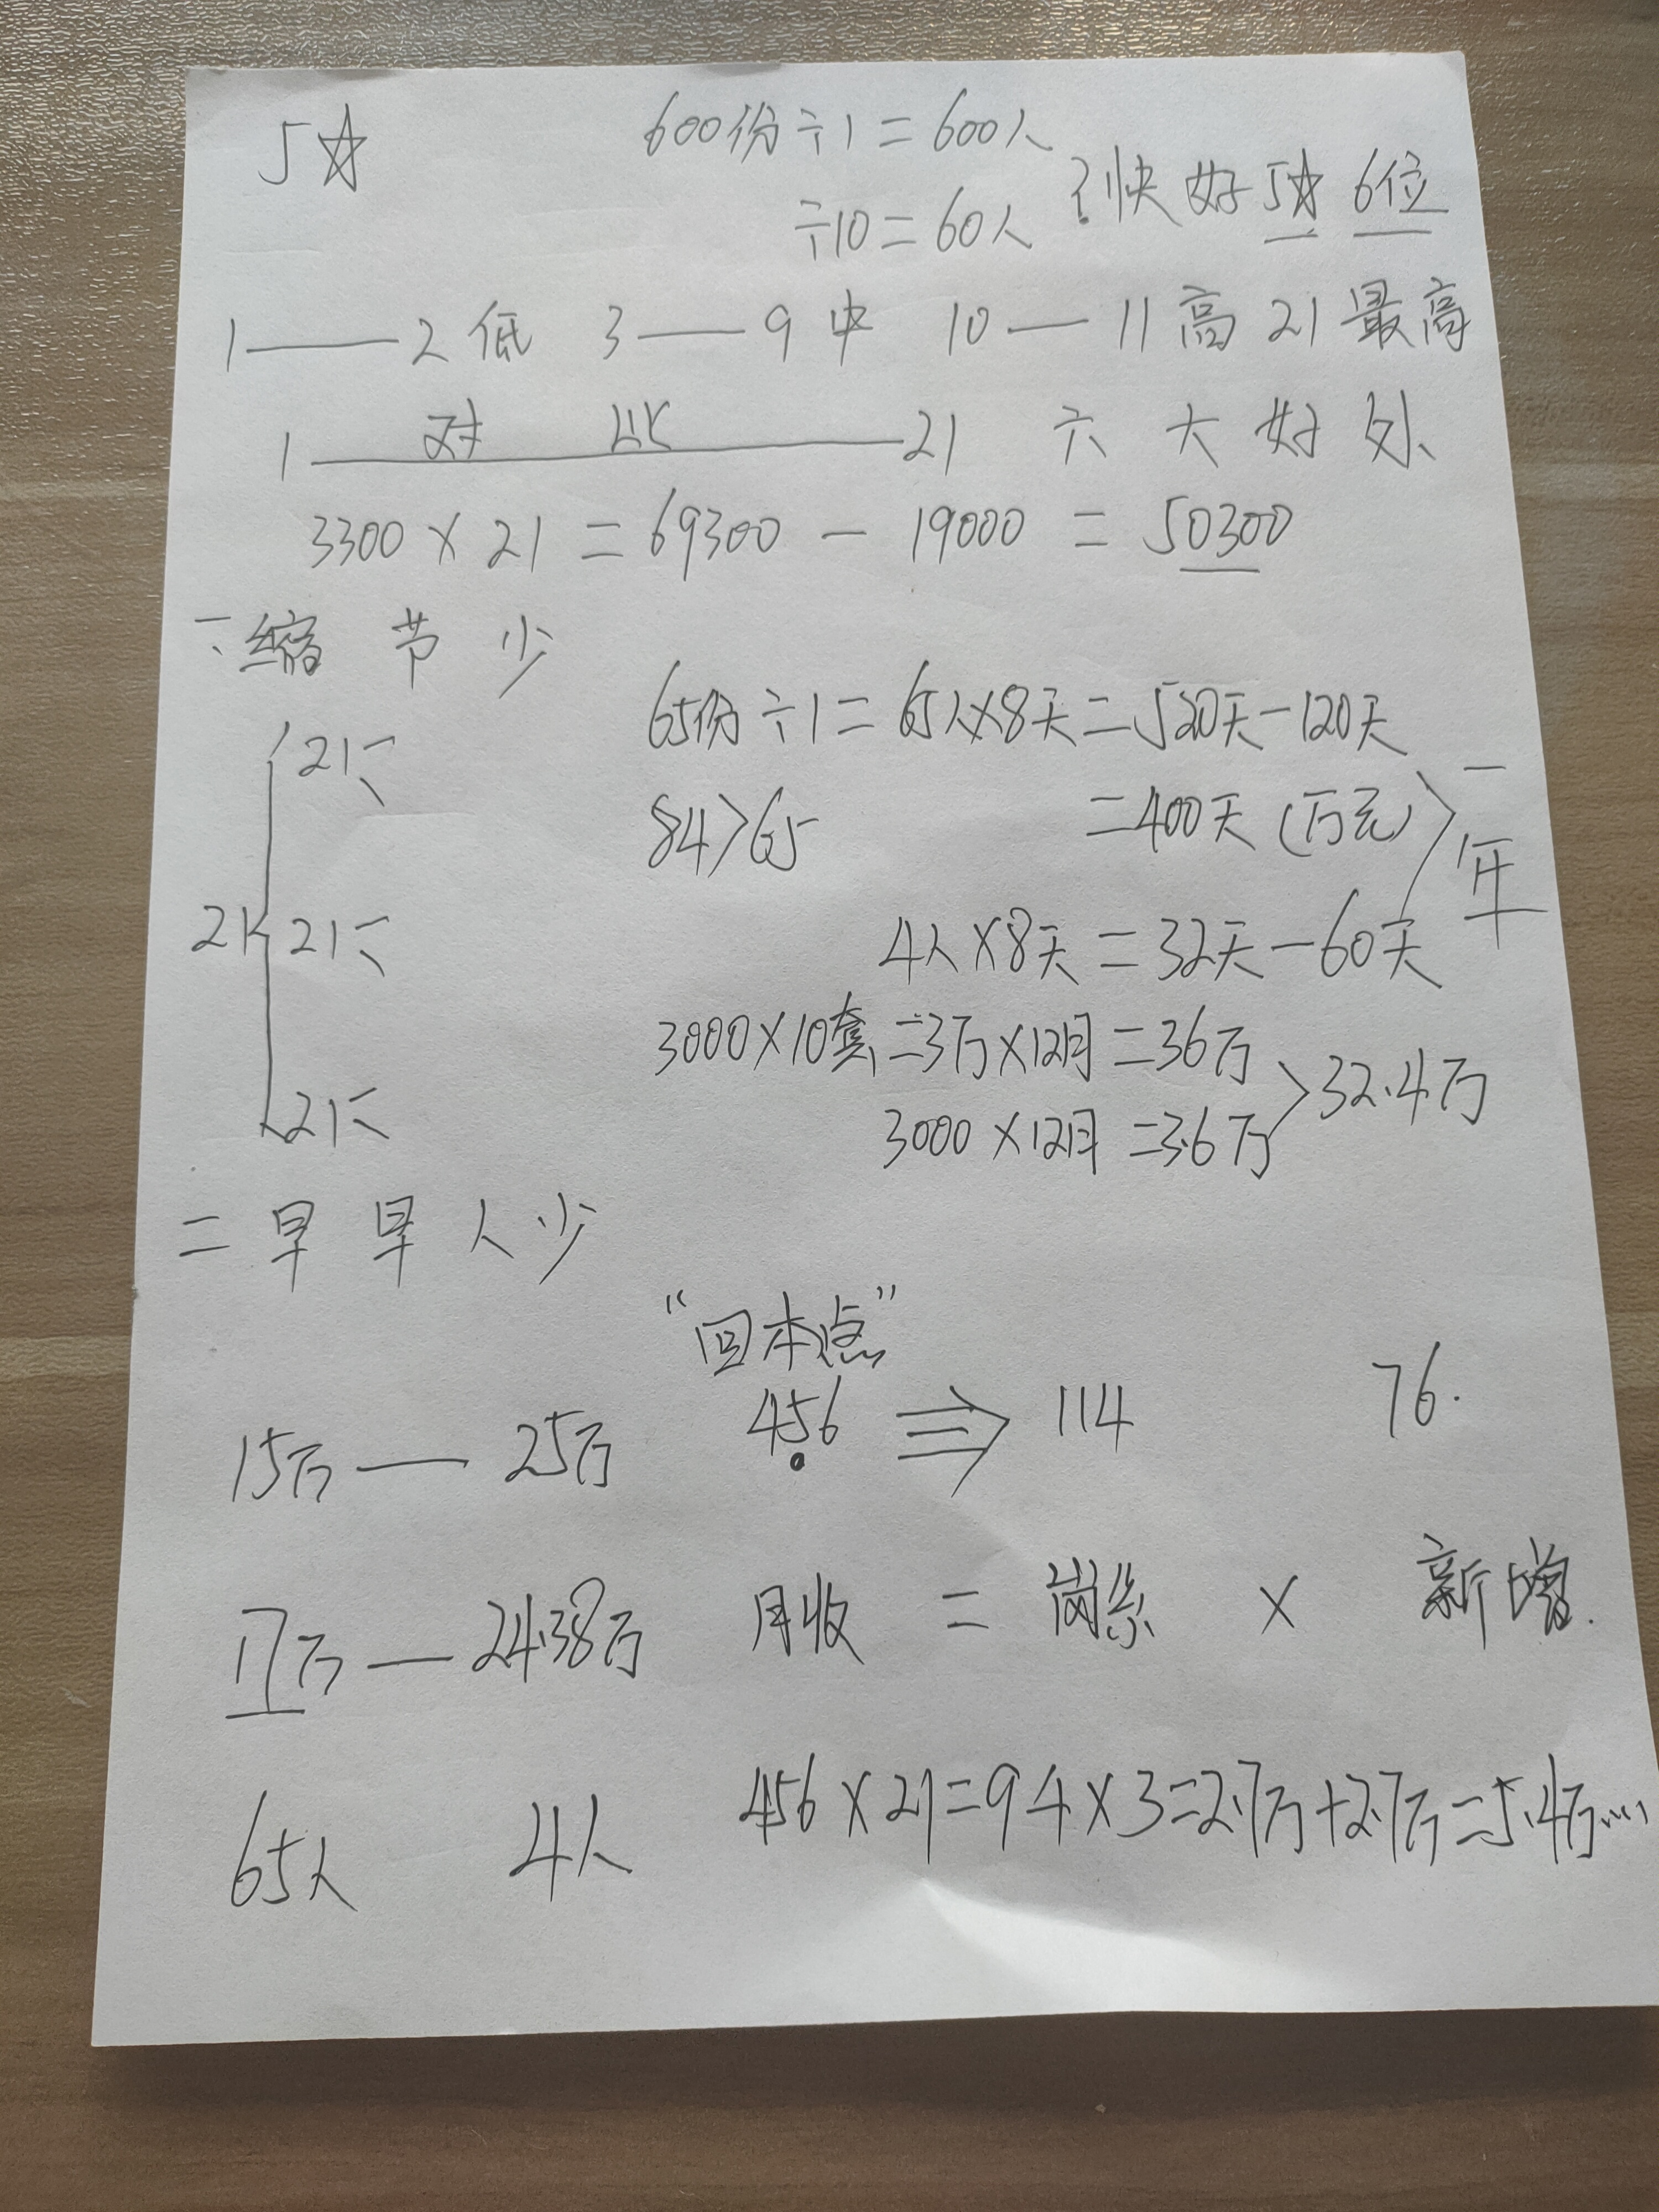 5☆ 600份÷1=600人
÷10=60人 ?快好5☆ 6位
1——2低 3——9中 10—11高 21最高
1——对比——21 六大好处
3300×21=69300-19000=50300
一、缩节少
65份÷1=65人×8天=520天-120天
21
84>65 =400天(万元)
一年
21 21
4人×8天=32天-60天
3000×10套=3万×12月=36万
21 3000×12月=3.6万 >32.4万
二早早人少
“回本点”
15万—25万 456 ⇒ 114 76.
17万—24.38万 月收=岗系×新增.
65人 4人 456×21=94×3=2.7万+2.7万=5.4万....